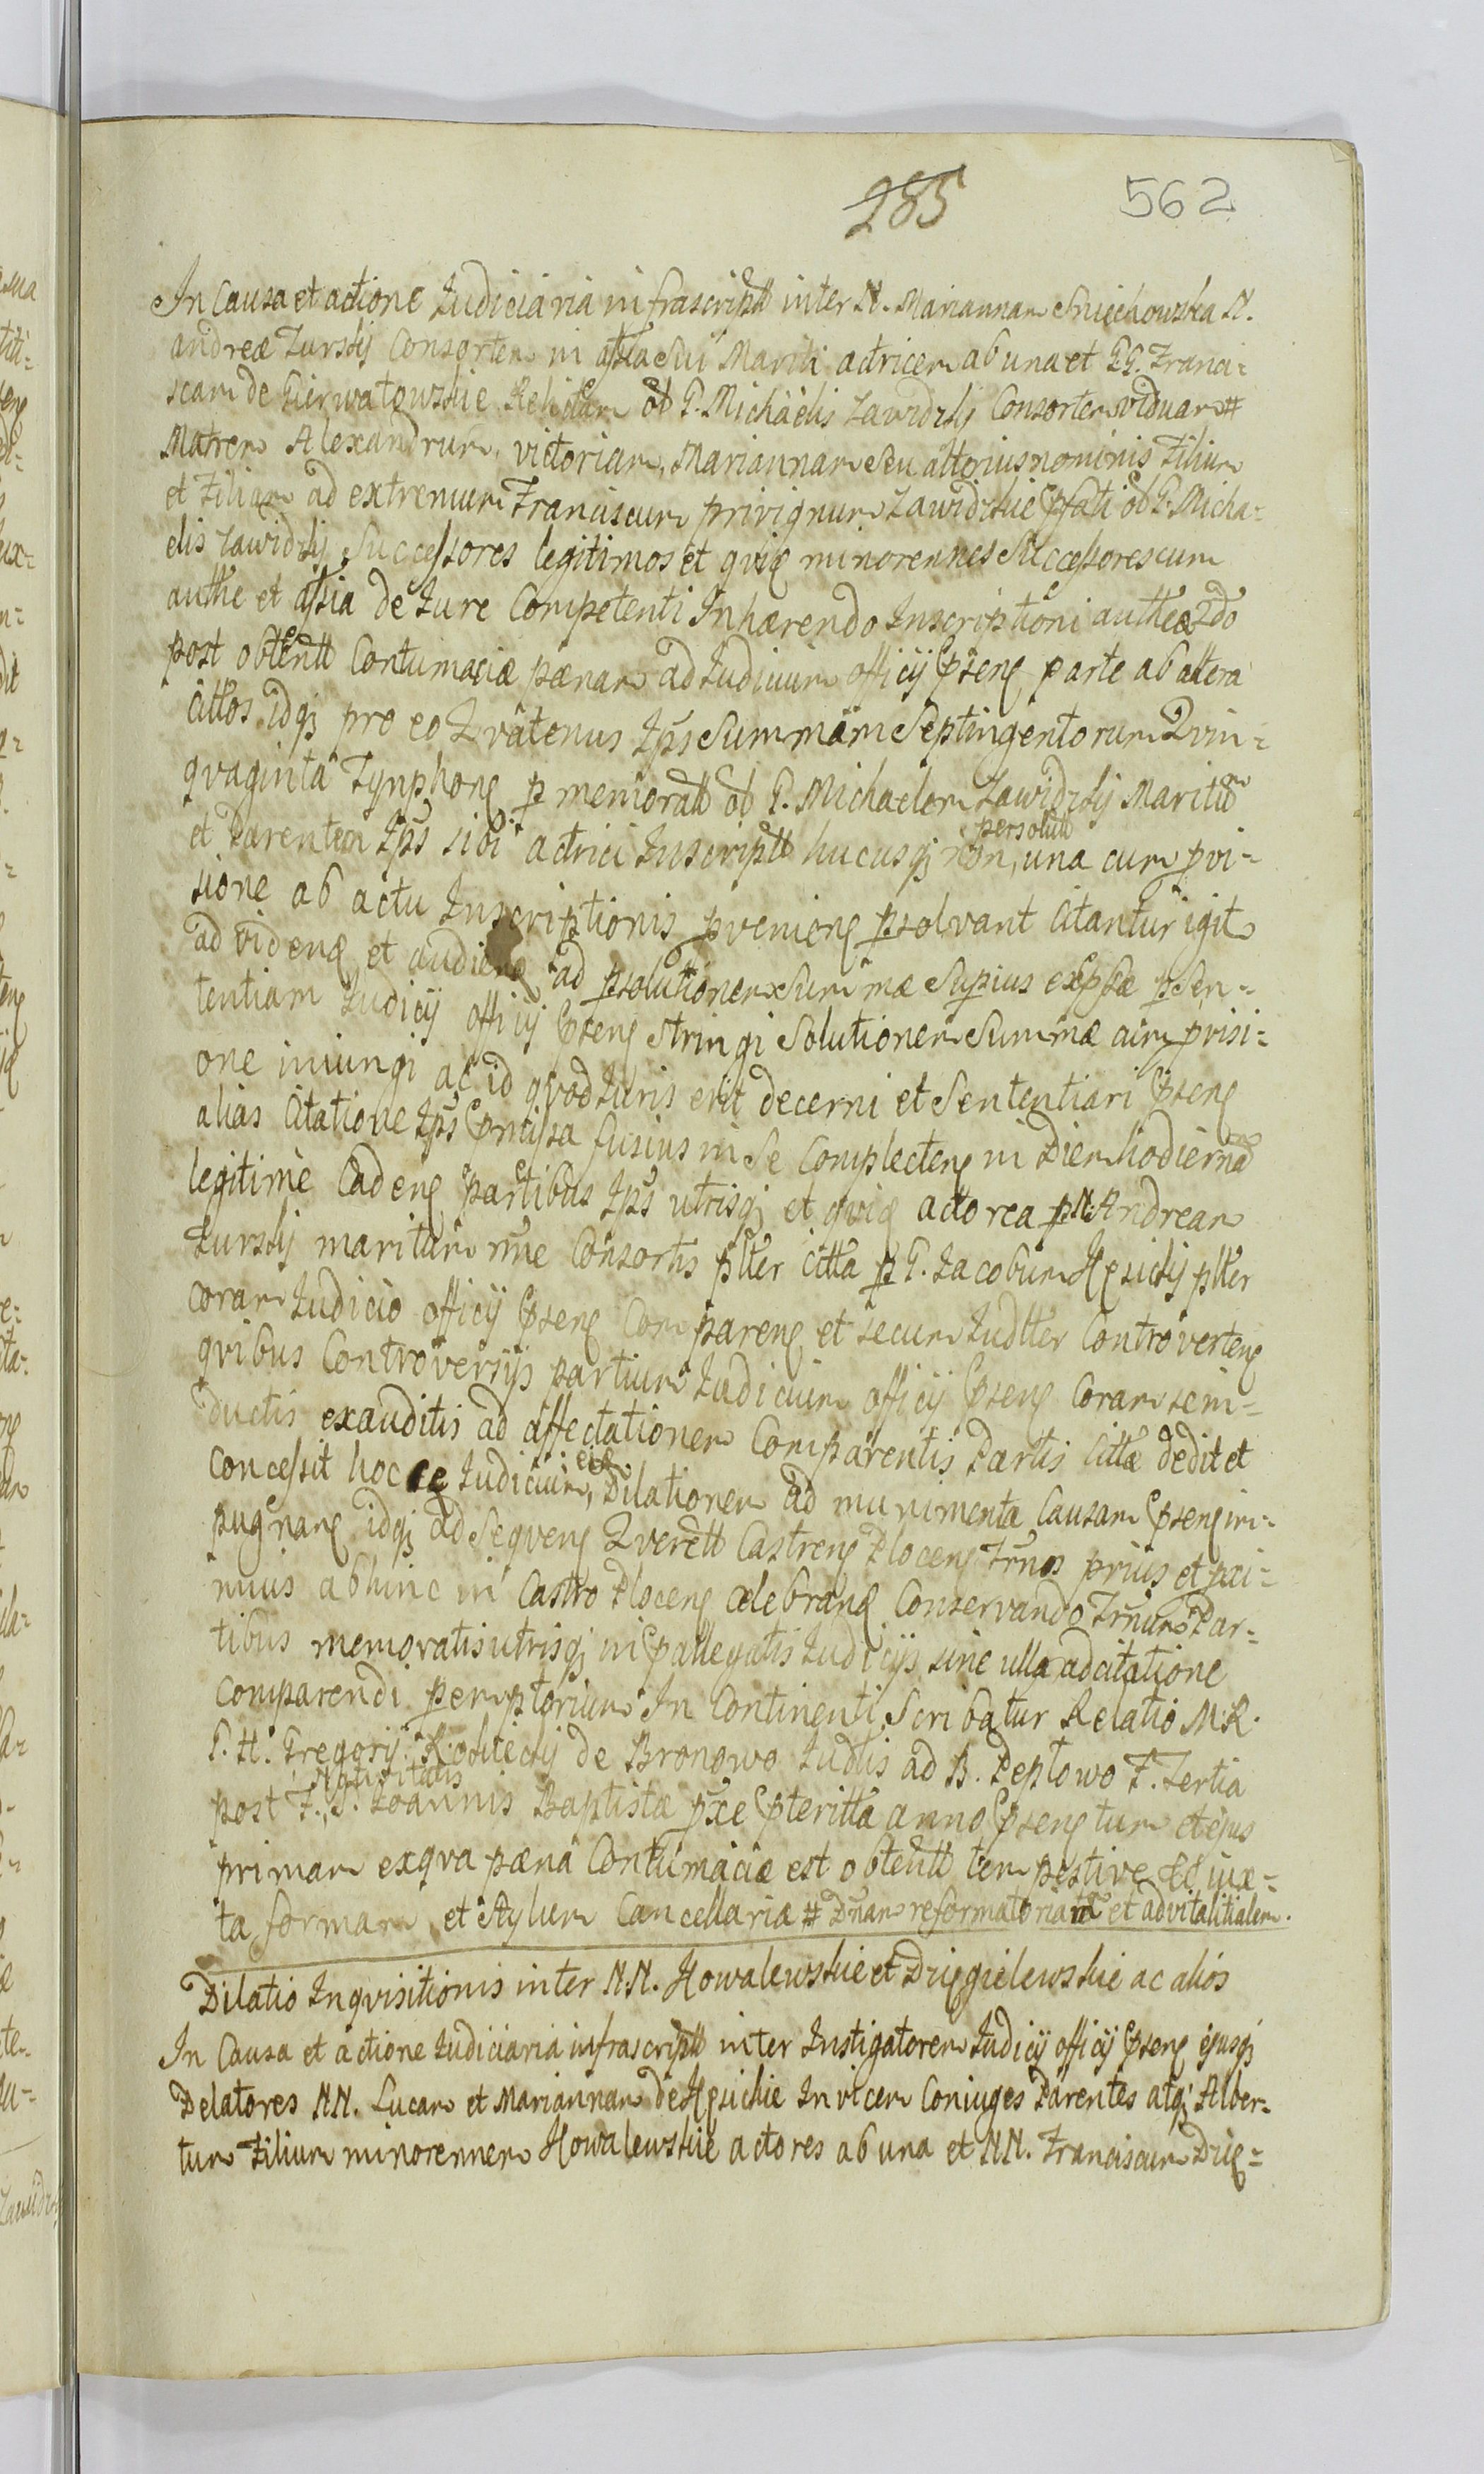 285 562
In Causa et actione Judiciaria infrascriptt inter N. Mariannam Sniechowska N.
andreæ Turskij Consortem in assia sui Mariti actricem ab una et GG. Franci=
scam de Gierwatowskie Relictam ol G. Michaelis Zawidzkij Consortem viduam #
Matrem Alexandrum, victoriam, Mariannam seu alteriusnominis Filium
et Filiam ad extremum Franciscum privignum Zawidzkie Psati ol G. Micha=
elis Zawidzkij Successores legitimos et qviq minorennes Successores cum
authe et assia de Jure Competenti Inhærendo Inscriptioni autheæ 2do
post obtentt Contumaciæ pænam ad Judicium officij Psenq parte ab altera
Cittos idqz pro eo Qvatenus Ips Summam Septingentorum Qvin=
qvaginta Tynphonq p memoratt ol G. Michaelem Zawidzkij Maritum
et Parentem Ips sibi actrici Inscriptt hucusqz non, persolutt una cum pvi=
sione ab actu Inscriptionis pvenienq psolvant Citantur igitr
ad videnq et audienq ad psolutionem Summæ Supius expssæ p Sen=
tentiam Judicij officij Psenq Stringi Solutionem Summæ cum prisi=
one iniungi ac id qvod Juris erit decerni et Sententiari Psenq
alias Citatione Ips Pmissa fusius in se Complectenq in Diem hodiernam
legitime Cadenq partibus Ips utrisqz et qviq actorea p N. Andream
Turskij maritum rme Consortis plter citta p G. Jacobum Hęsickij plter
coram Judicio officij Psenq Comparenq et secum Judtter Controvertenq
qvibus Controversijs partium Judicium officij Psenq Coram sein=
ductis exauditis ad affectationem Comparentis Partis Cittæ dedit et
concessit hocce Judicium, eiæ Dilationem ad munimenta Causam Psenq im=
pugnanq idqz ad Seqvenq Qverett Castrenq Plocenq Trnos prius et pxi=
mius abhinc in Castro Plocenq celebranq Conservando Trnum Par=
tibus memoratis utrisqz in Pallegatis Judicijs sine ulla adcitatione
comparendi. pemptorium In Continenti Scribatur Relatio M. R.
G. H. Gregorij Rościeckij de Bronowo Judtis ad B. Peptowo F. Tertia
post F. Nativitatis S. Joannis Baptistæ pxe Pteritta anno Psenq tum et ejus
primam exqva pæna Contumaciæ est obtentt tempestive Et jux=
ta formam et Stylum Cancellariæ # Dnam reformatoriam et advitalitialem.
Dilatio Inqvisitionis inter N.N. Kowalewskie et Dzięgielewskie ac alios
In Causa et actione Judiciaria infrascriptt inter Instigatorem Judicij officij Psenq ejusqz
Delatores NN. Lucam et Mariannam de Hęsickie Invicem Coniuges Parentes atqz Alber=
tum Filium minorennem Kowalewskie actores ab una et NN. Franciscum Dzię=